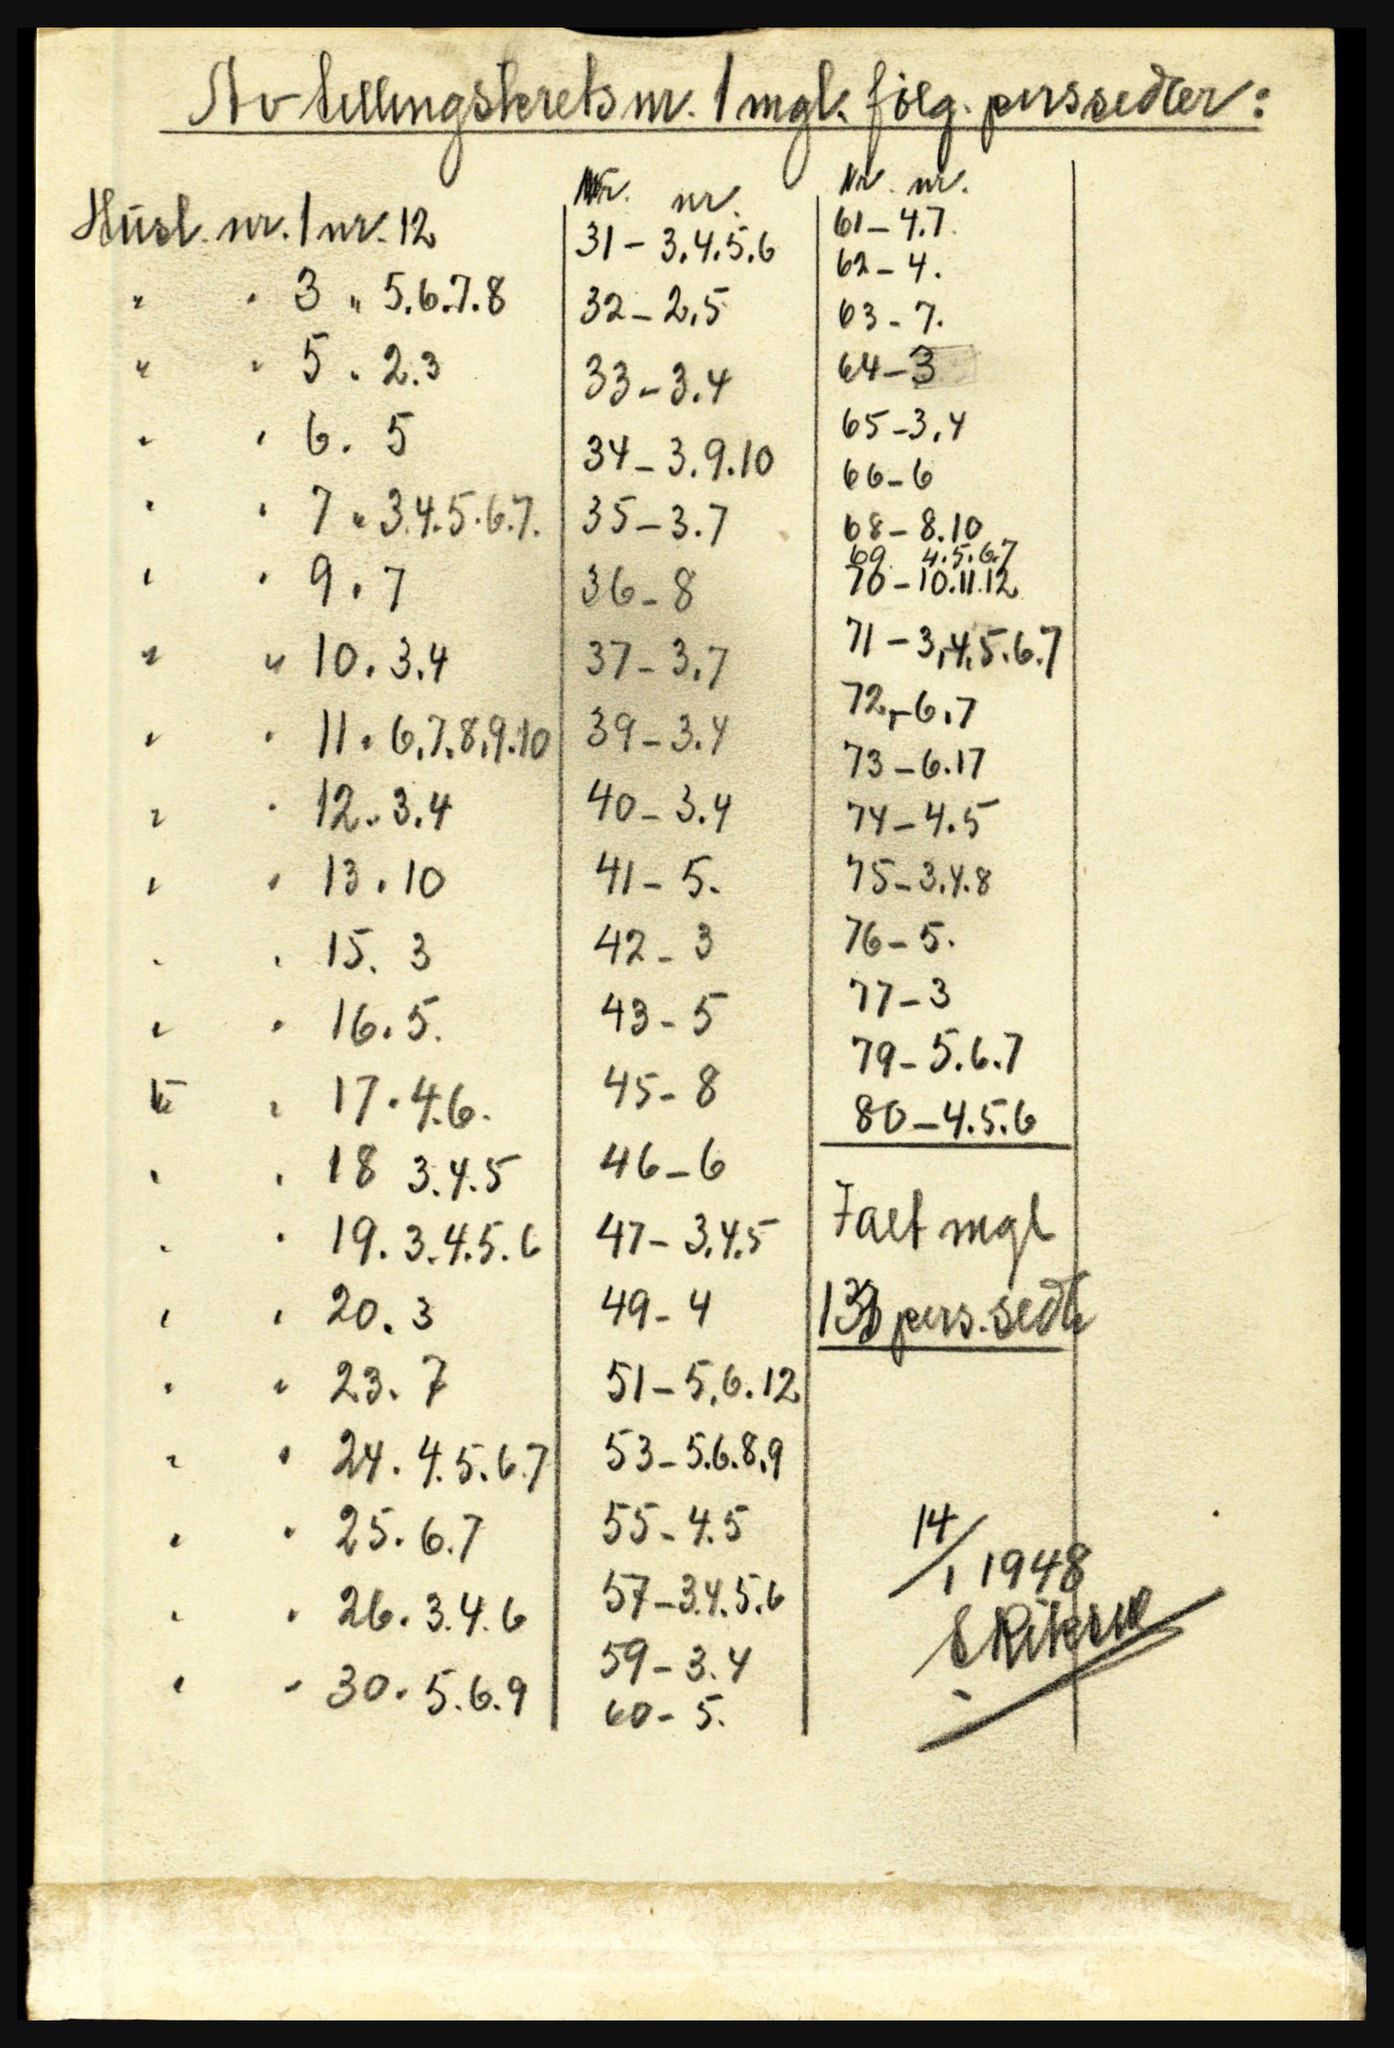 Av tellingskrets nr. 1 mgl. følg. perssedler:
Husl. nr. 1 nr. 12
" " 3 " 5.6.7.8
" " 5 . 2.3
" " 6 . 5
" " 7 " 3.4.5.6.7.
" " 9 . 7
" " 10 . 3.4
" " 11 . 6.7.8.9.10
" " 12 . 3.4
" " 13 . 10
" " 15 . 3
" " 16 . 5.
" " 17 . 4.6.
" " 18 3.4.5
" " 19 . 3.4.5.6
" " 20 . 3
" " 23 . 7
" " 24 . 4.5.6.7
" " 25 . 6.7
" " 26 . 3.4.6
" " 30 . 5.6.9
Nr. nr.
31 - 3.4.5.6
32 - 2.5
33 - 3.4
34 - 3.9.10
35 - 3.7
36 - 8
37 - 3.7
39 - 3.4
40 - 3.4
41 - 5.
42 - 3
43 - 5
45 - 8
46 - 6
47 - 3.4.5
49 - 4
51 - 5.6.12
53 - 5.6.8.9
55 - 4.5
57 - 3.4.5.6
59 - 3.4
60 - 5.
Nr. nr.
61 - 4.7.
62 - 4.
63 - 7.
64 - 3
65 - 3.4
66 - 6
68 - 8.10
69 4.5.6.7
70 - 10.11.12
71 - 3.4.5.6.7
72 - 6.7
73 - 6.17
74 - 4.5
75 - 3.4.8
76 - 5.
77 - 3
79 - 5.6.7
80 - 4.5.6
Ialt mgl
pers.sedle
14/1 1948